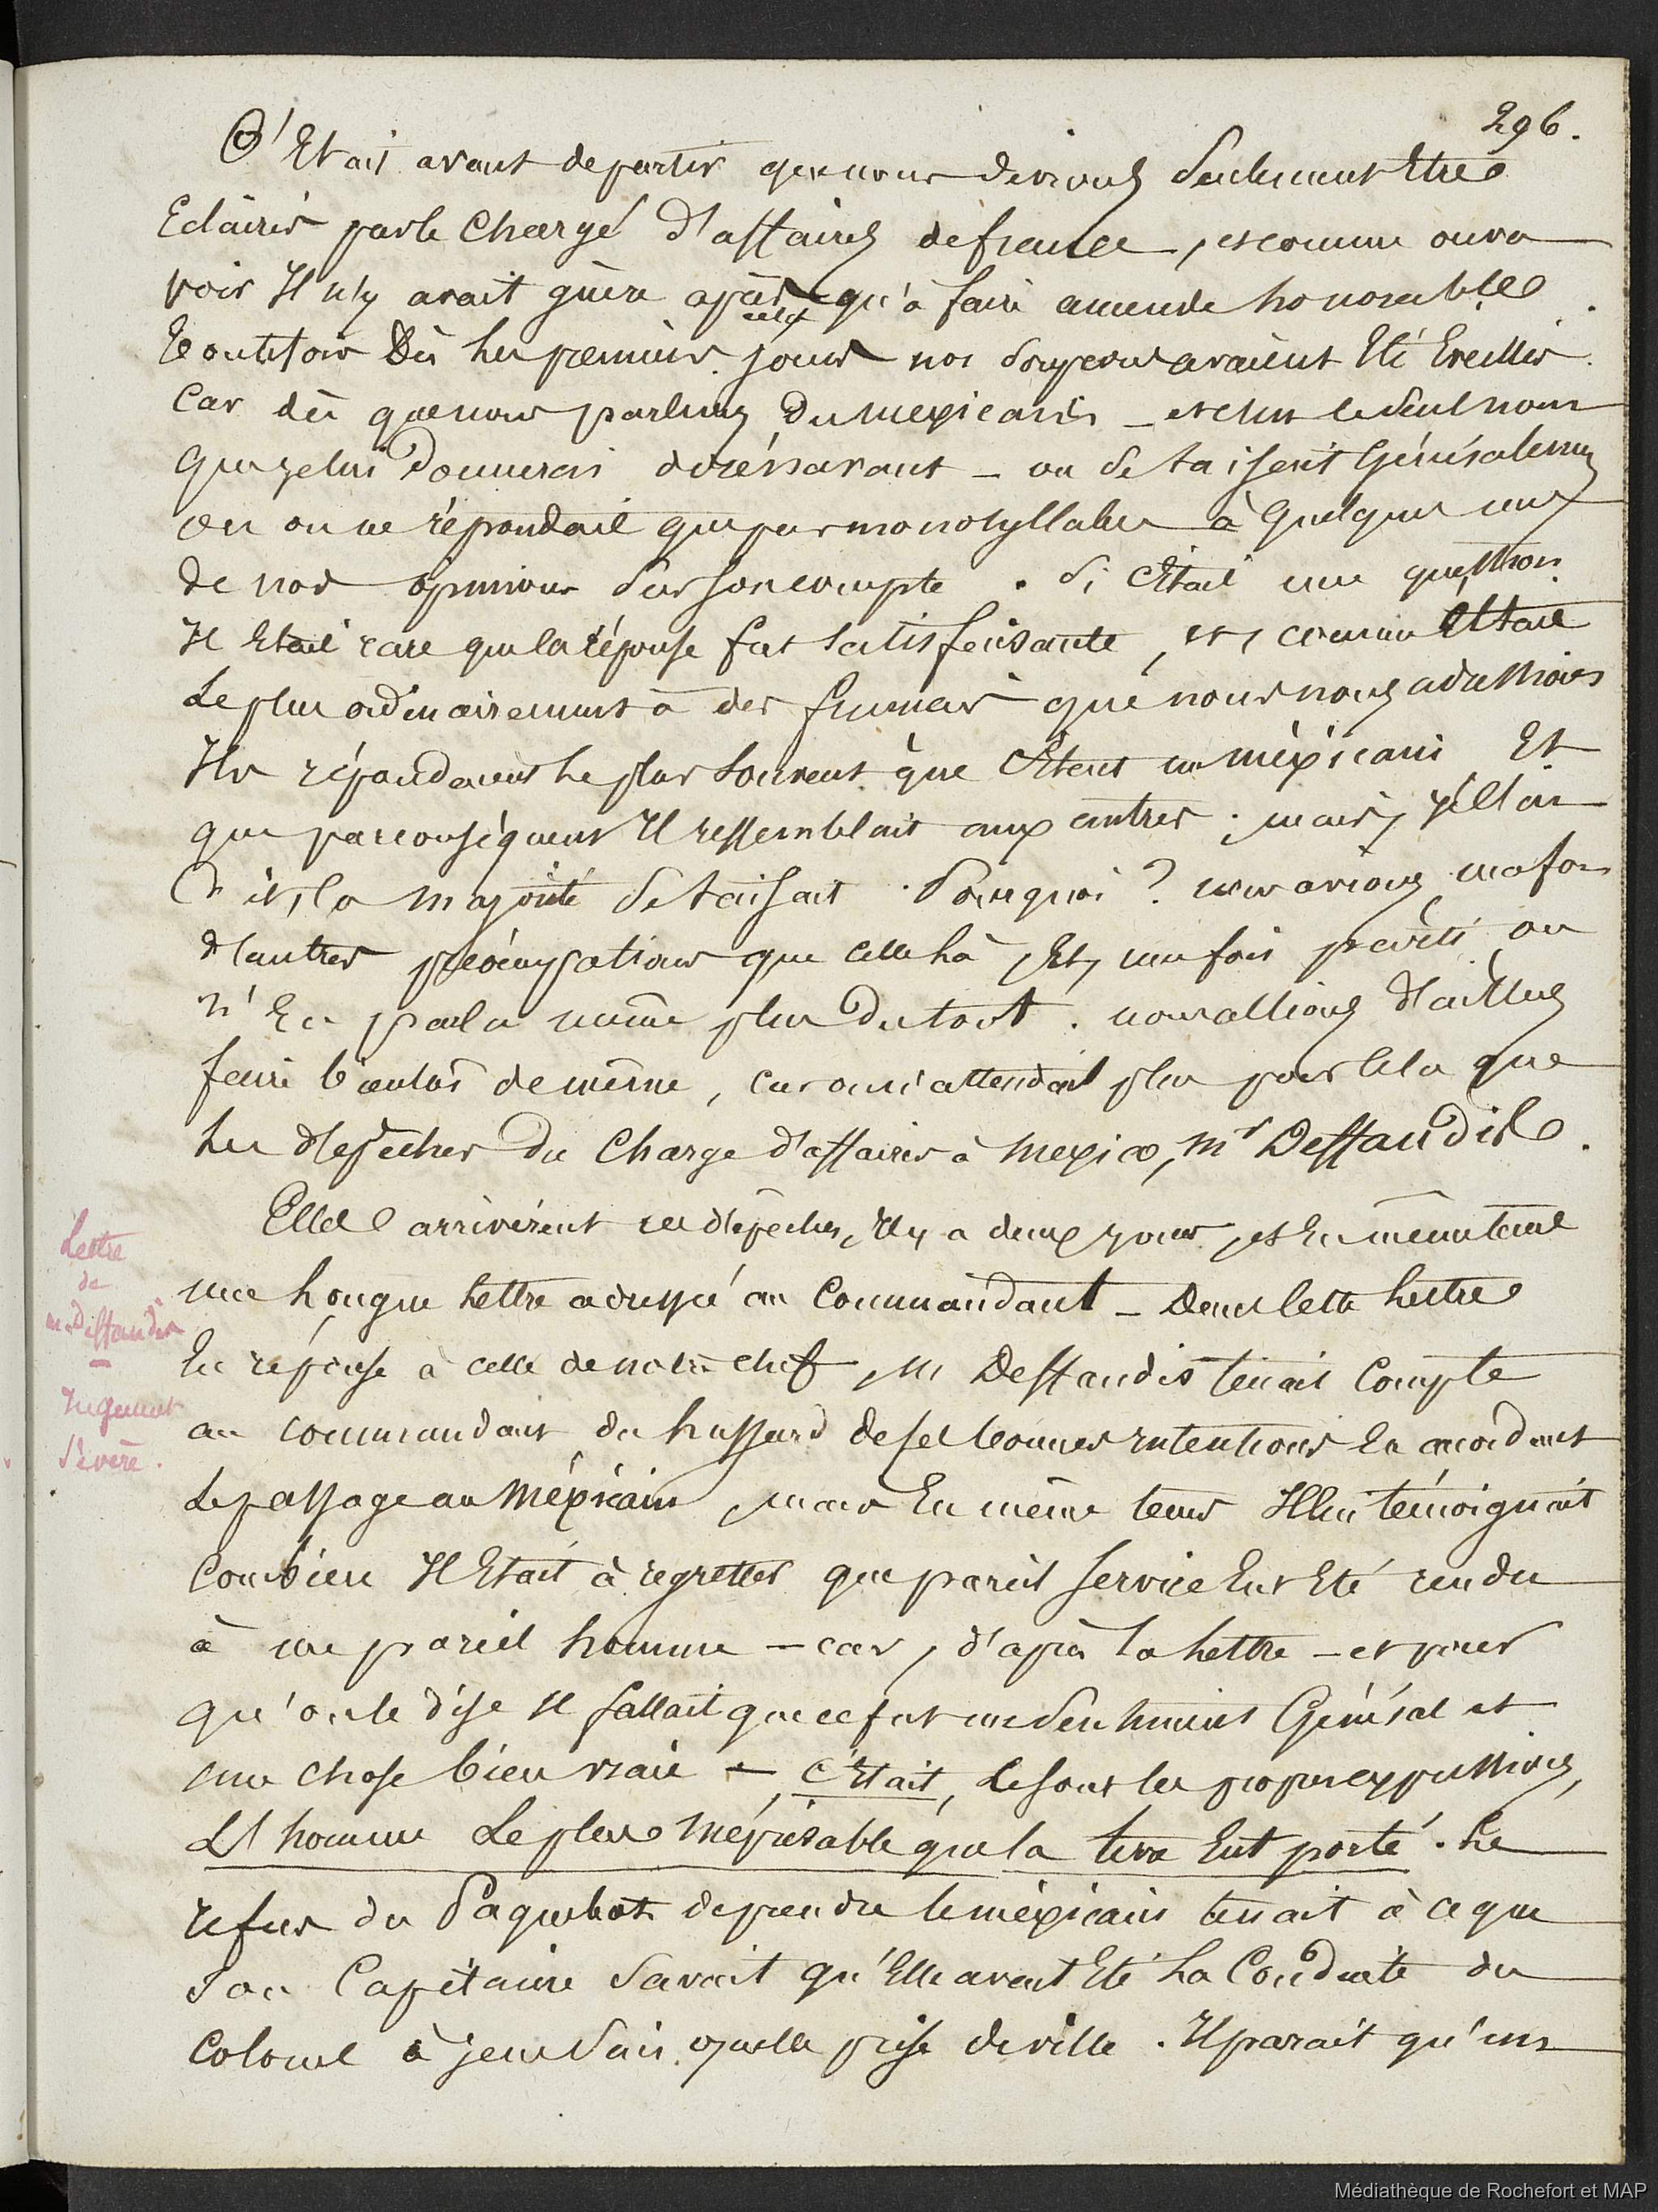 296.
C'Etait avant de partir que nous devions seulement Etre
Eclairés par le Chargé d'affaires de france, et comme on va
voir Il n'y avait guère après cela qu'à faire amende honorable.
Toutefois Dès les premiers jours nos soupçons avaient Eté Eveillés.
Car dès que nous parlions Du mexicain – et c'est le seul nom
que je lui donnerai dorénavant – on se taisait Généralement
ou on ne répondait que par monosyllabes à quelques unes
de nos opinions sur son compte. Si c'Etait une question
Il Etait rare que la réponse fut satisfaisante, et, comme c'Etait
le plus ordinairement à des français que nous nous adressions
Ils répondaient le plus souvent que c'Etait un méxicain Et
que par conséquent Il ressemblait aux autres; mais, je l'ai
Dit, la majorité se taisait. Pourquoi? nous avions, ma foi
d'autres préoccupations que celle là, Et, une fois parti on
n'En parla même plus Du tout. nous allions d'ailleurs
faire bientôt de même, car on n'attendait plus pour cela que
les dépêches Du Chargé d'affaires à Mexico, Mr Deffaudis.
Elles arrivèrent ces dépêches, Il y a deux jours, et En même tems
une longue lettre adressée au Commandant – Dans cette lettre
En réponse à celle de notre chef, M Deffaudis tenait Compte
au commandant du hussard de ses bonnes intentions En accordant
le passage au Méxicain, mais En même tems Il lui témoignait
combien Il Etait à regretter que pareil service Eut Eté rendu
à un pareil homme – car, d'après la lettre – et pour
qu'on le dise Il fallait que ce fut un sentiment Général et
une chose bien vraie – c'Etait, ce sont les propres expressions,
L'homme le plus méprisable que la terre Eut porté. Le
refus du Paquebot de prendre le méxicain tenait à ce que
son Capitaine savait qu'Elle avait Eté la Conduite du
Colonel à je ne sais quelle prise de ville. Il parait qu'un
Lettre
de
m. Deffaudis
–
Jugement
sévère.
Médiathèque de Rochefort et MAP